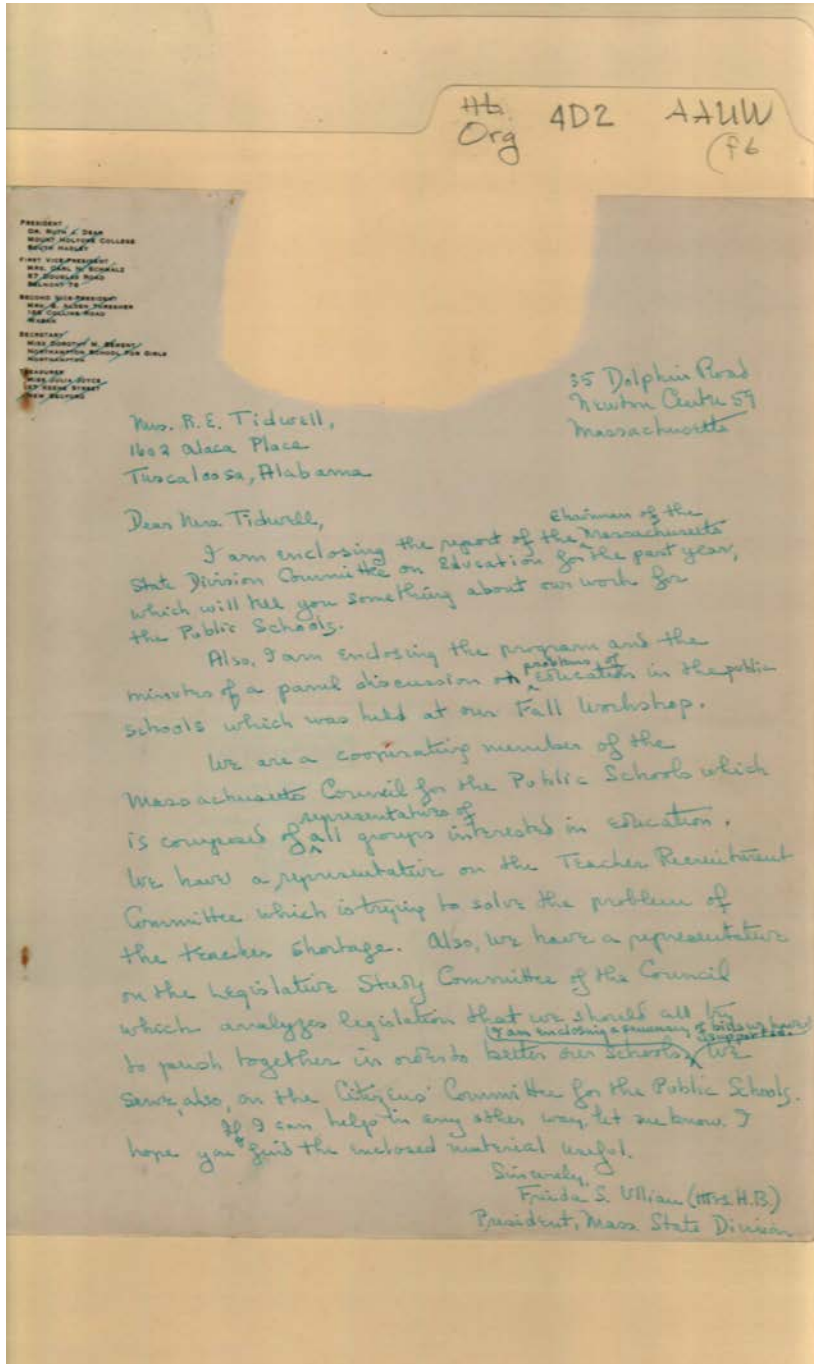 Hb.
Org 4D2 AAUW
(f6
PRESIDENT
DR. RUTH J. DEAN
MOUNT HOLYOKE COLLEGE
SOUTH HADLEY
FIRST VICE-PRESIDENT
MRS. CARL N. SCHMALZ
57 DOUGLAS ROAD
BELMONT 78
SECOND VICE-PRESIDENT
MRS. B. ALDEN THRESHER
COLLINS ROAD
WABAN
SECRETARY
MISS DOROTHY M. BEMENT
NORTHAMPTON SCHOOL FOR GIRLS
NORTHAMPTON
TREASURER
MISS JULIA
STREET
NEW BEDFORD
35 Dolphin Road
Newton Centre 59
Massachusetts
Mrs. R. E. Tidwell,
1602 Alaca Place
Tuscaloosa, Alabama
Dear Mrs Tidwell,
Chairman of the
I am enclosing the report of the Massachusetts
State Division Committee on Education for the past year,
which will tell you something about our work for
the Public Schools.
Also, I am enclosing the program and the
problems of
minutes of a panel discussion on education in the public
schools which was held at our Fall Workshop.
We are a cooperating member of the
Massachusetts Council for the Public Schools which
representatives of
is composed of all groups interested in education.
We have a representative on the Teacher Recruitment
Committee which is trying to solve the problem of
the teacher shortage. Also, we have a representative
on the Legislative Study Committee of the Council
which analyzes legislation that we should all try
I am enclosing a summary of bills we have supported.
to push together in order to better our schools. We
serve, also, on the Citizens' Committee for the Public Schools.
If I can help in any other way, let me know. I
hope you find the enclosed material useful.
Sincerely,
Frieda S. Ullian (Mrs. H.B.)
President, Mass State Division